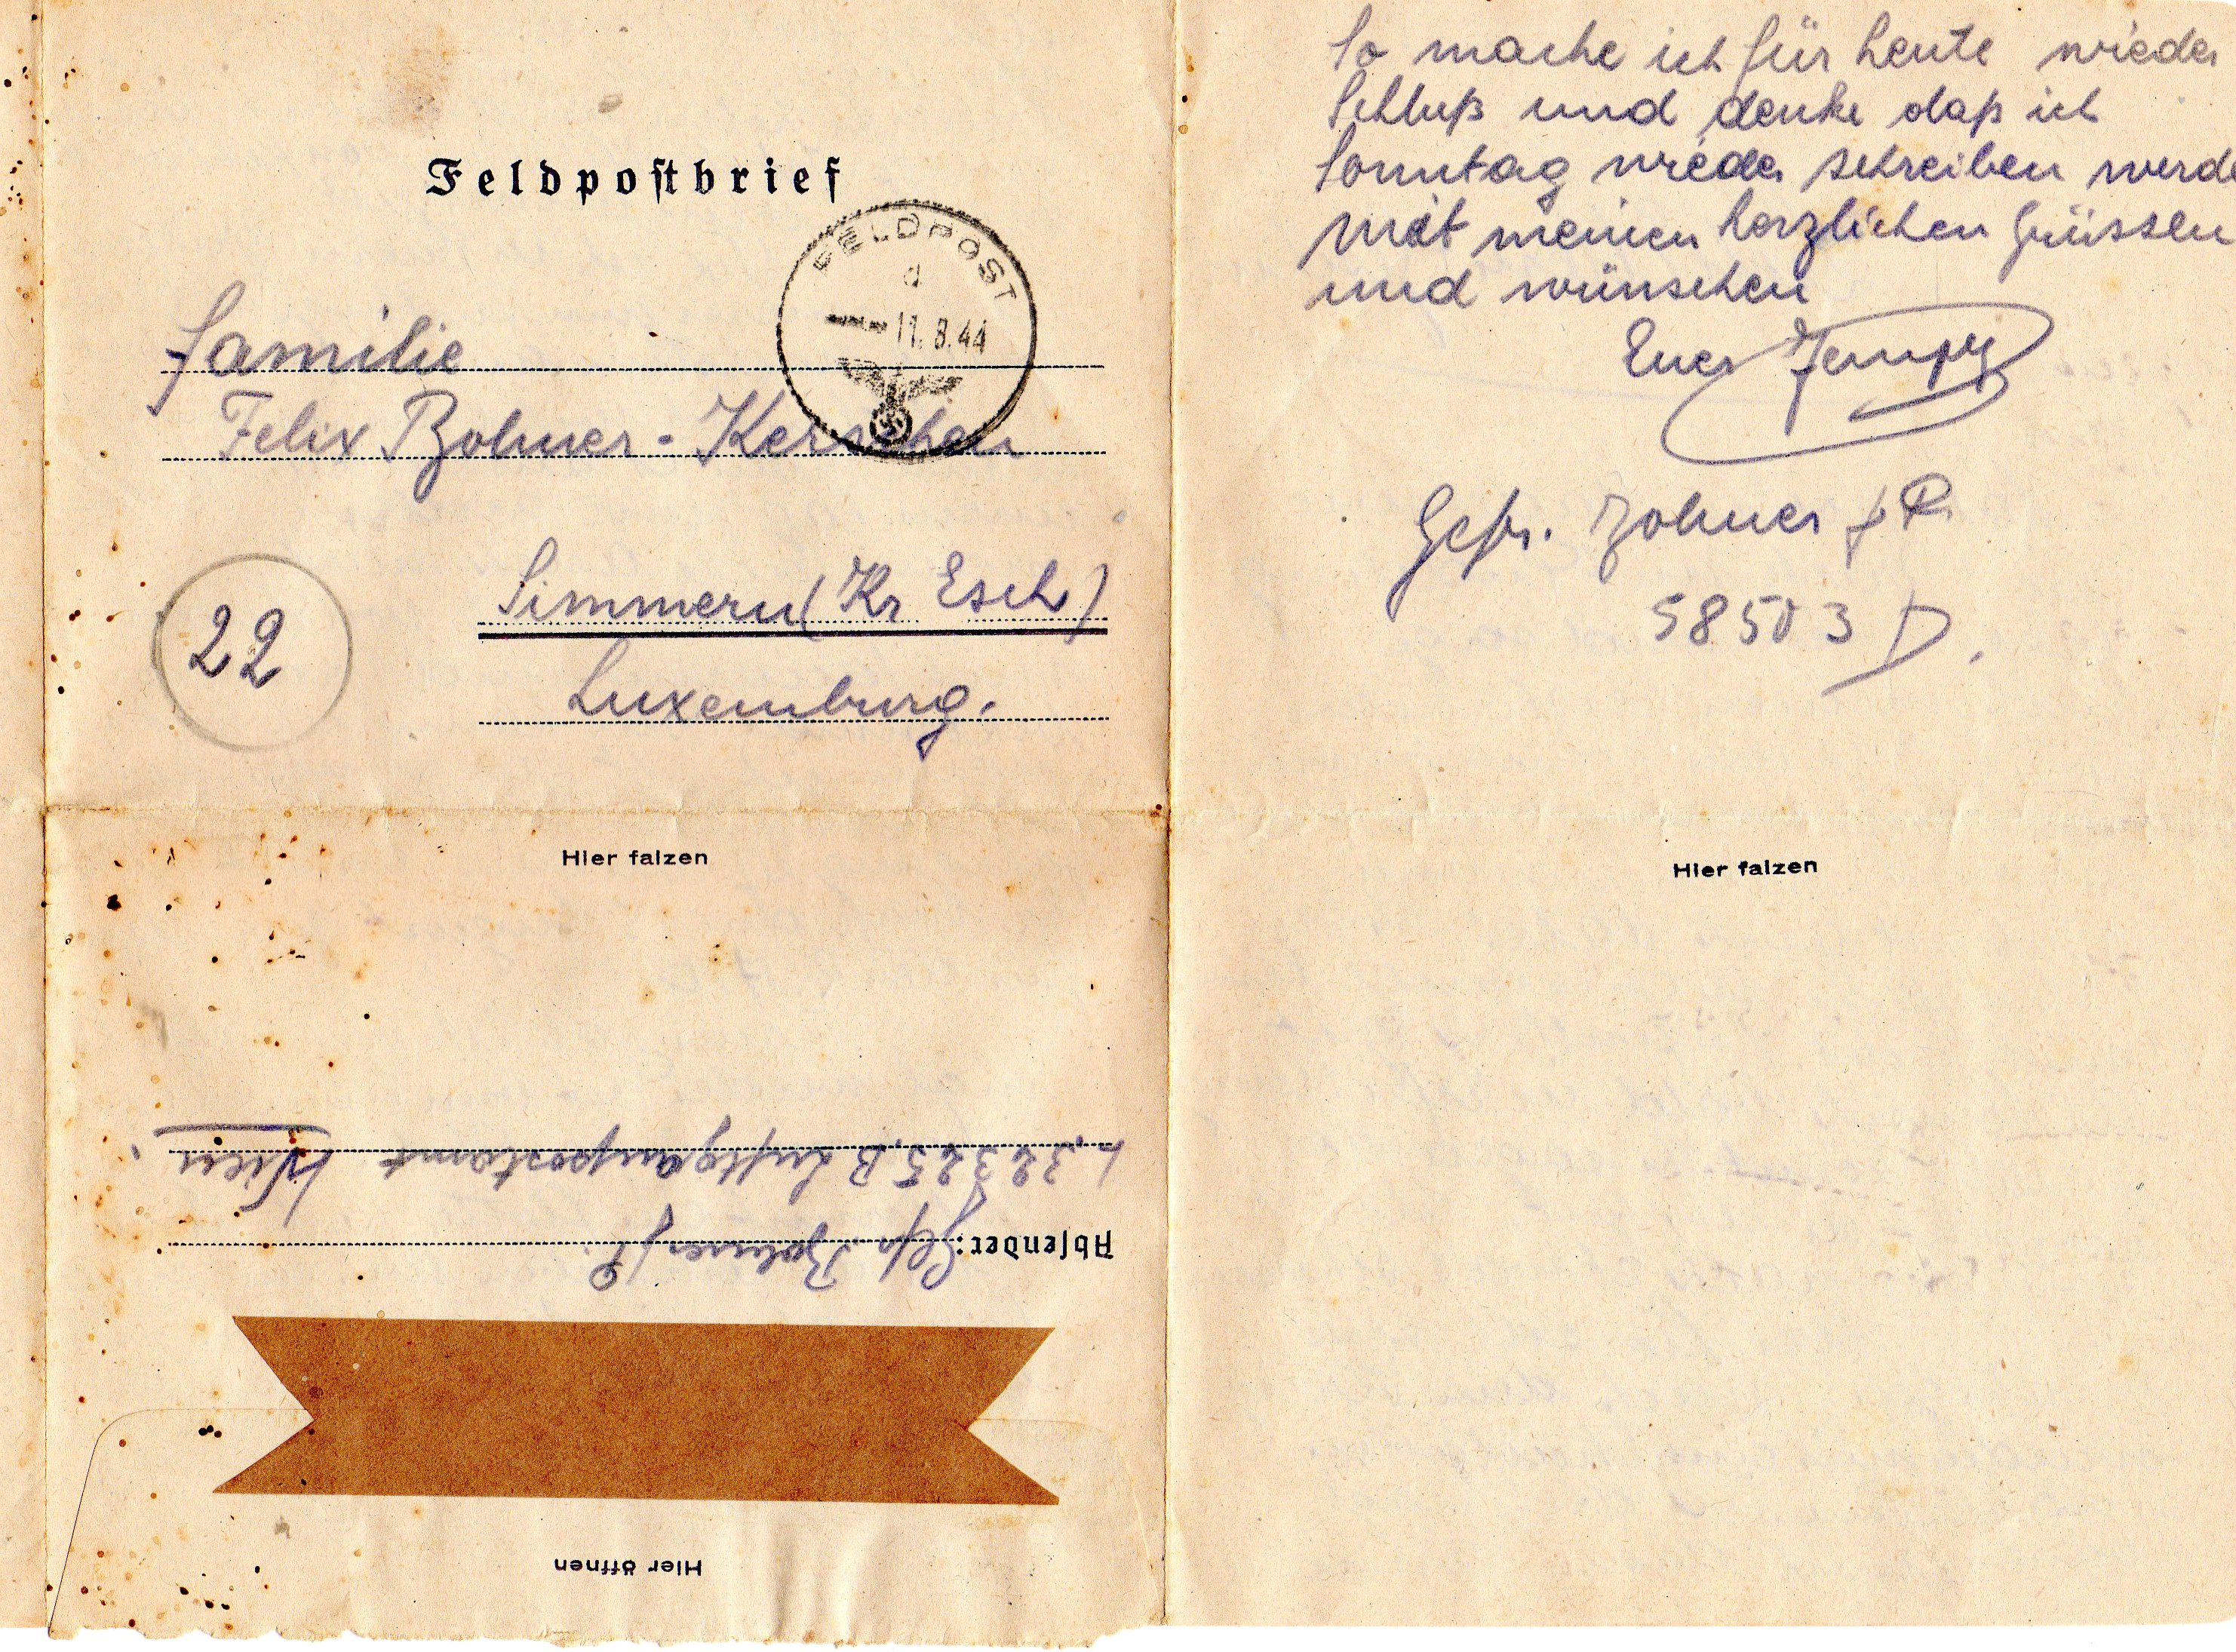 Feldpostbrief
FELDPOST
d
11.8.44
Familie
Felix Bohner - Kerschen
22
Simmern (Kr Esch)
Luxemburg.
Hier falzen
L.32325 B Luftgaupostamt Wien
Absender: Gefr. Bohner J.P.
Hier öffnen
So mache ich für heute wieder
Schluß und denke daß ich
Sonntag wieder schreiben werde
Mit meinen herzlichen Grüssen
und wünschen
Euer Jempy
Gefr. Bohner J P.
58503 D.
Hier falzen